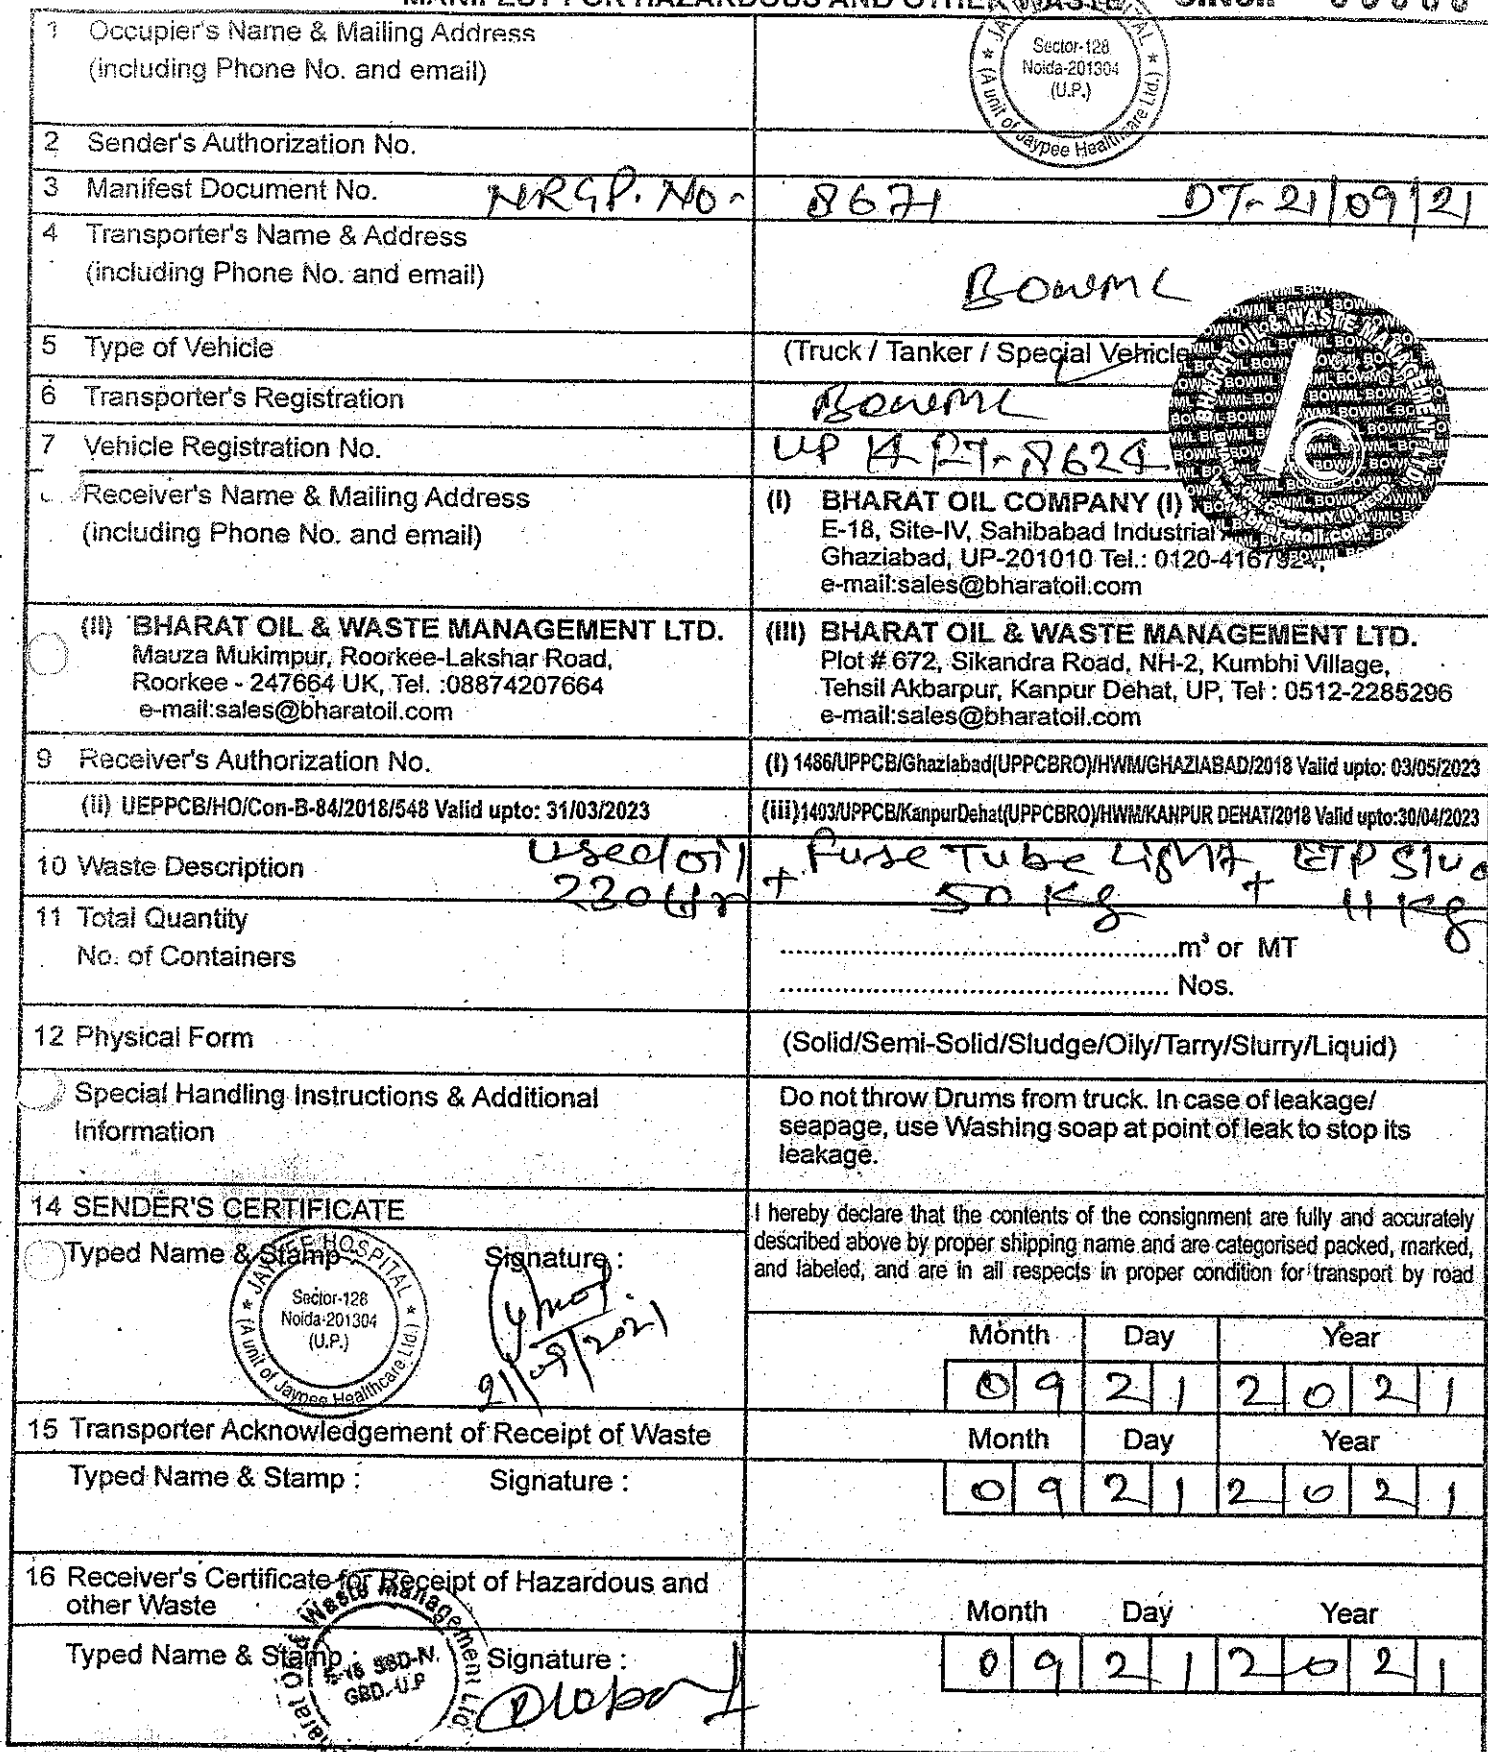 MANIFEST FOR HAZARDOUS AND OTHER WASTE
1 Occupier's Name & Mailing Address
(including Phone No. and email)
Sector-128
Noida-201304
(U.P.)
(A unit of Jaypee Healthcare Ltd.)
2 Sender's Authorization No.
3 Manifest Document No. NRGP. No - 8671 DT- 21/09/21
4 Transporter's Name & Address
(including Phone No. and email)
BOWML
5 Type of Vehicle (Truck / Tanker / Special Vehicle
6 Transporter's Registration BOWML
7 Vehicle Registration No. UP 14 8624
Receiver's Name & Mailing Address
(including Phone No. and email)
(I) BHARAT OIL COMPANY (I)
E-18, Site-IV, Sahibabad Industrial
Ghaziabad, UP-201010 Tel.: 0120-4167924,
e-mail:sales@bharatoil.com
BHARAT OIL & WASTE MANAGEMENT LTD.
(II) BHARAT OIL & WASTE MANAGEMENT LTD.
Mauza Mukimpur, Roorkee-Lakshar Road,
Roorkee - 247664 UK, Tel. :08874207664
e-mail:sales@bharatoil.com
(III) BHARAT OIL & WASTE MANAGEMENT LTD.
Plot # 672, Sikandra Road, NH-2, Kumbhi Village,
Tehsil Akbarpur, Kanpur Dehat, UP, Tel : 0512-2285296
e-mail:sales@bharatoil.com
9 Receiver's Authorization No. (I) 1486/UPPCB/Ghaziabad(UPPCBRO)/HWM/GHAZIABAD/2018 Valid upto: 03/05/2023
(ii) UEPPCB/HO/Con-B-84/2018/548 Valid upto: 31/03/2023 (iii)1403/UPPCB/KanpurDehat(UPPCBRO)/HWM/KANPUR DEHAT/2018 Valid upto:30/04/2023
10 Waste Description used oil + Fuse Tube Light + ETP
230 Ltr 50 Kg 11 Kg
11 Total Quantity
No. of Containers
............m³ or MT
............ Nos.
12 Physical Form (Solid/Semi-Solid/Sludge/Oily/Tarry/Slurry/Liquid)
Special Handling Instructions & Additional
Information
Do not throw Drums from truck. In case of leakage/
seapage, use Washing soap at point of leak to stop its
leakage.
14 SENDER'S CERTIFICATE
Typed Name & Stamp : Signature :
JAYPEE HOSPITAL
Sector-128
Noida-201304
(U.P.)
(A unit of Jaypee Healthcare Ltd.)
21/09/2021
I hereby declare that the contents of the consignment are fully and accurately
described above by proper shipping name and are categorised packed, marked,
and labeled, and are in all respects in proper condition for transport by road
Month Day Year
0 9 2 1 2 0 2 1
15 Transporter Acknowledgement of Receipt of Waste
Month Day Year
Typed Name & Stamp : Signature :
0 9 2 1 2 0 2 1
16 Receiver's Certificate for Receipt of Hazardous and
other Waste
Month Day Year
Typed Name & Stamp : Signature :
0 9 2 1 2 0 2 1
Waste Management Ltd
GBD.-U.P